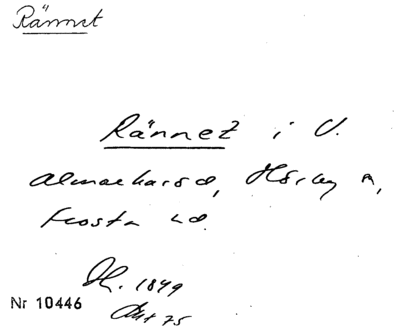 Rännet
Rännet i V.
Almaharsd, Hörby n,
Frosta hd.
1849
Nr 10446
75